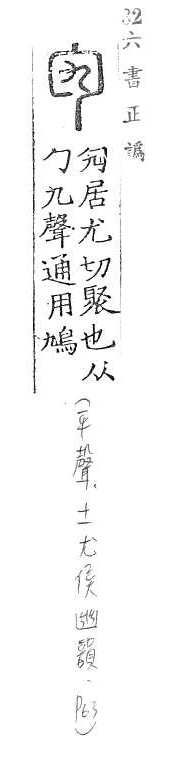 32 六書正譌
勼居尤切聚也从
勹九聲通用鳩
(平聲.十一尤侯幽韻.P63)